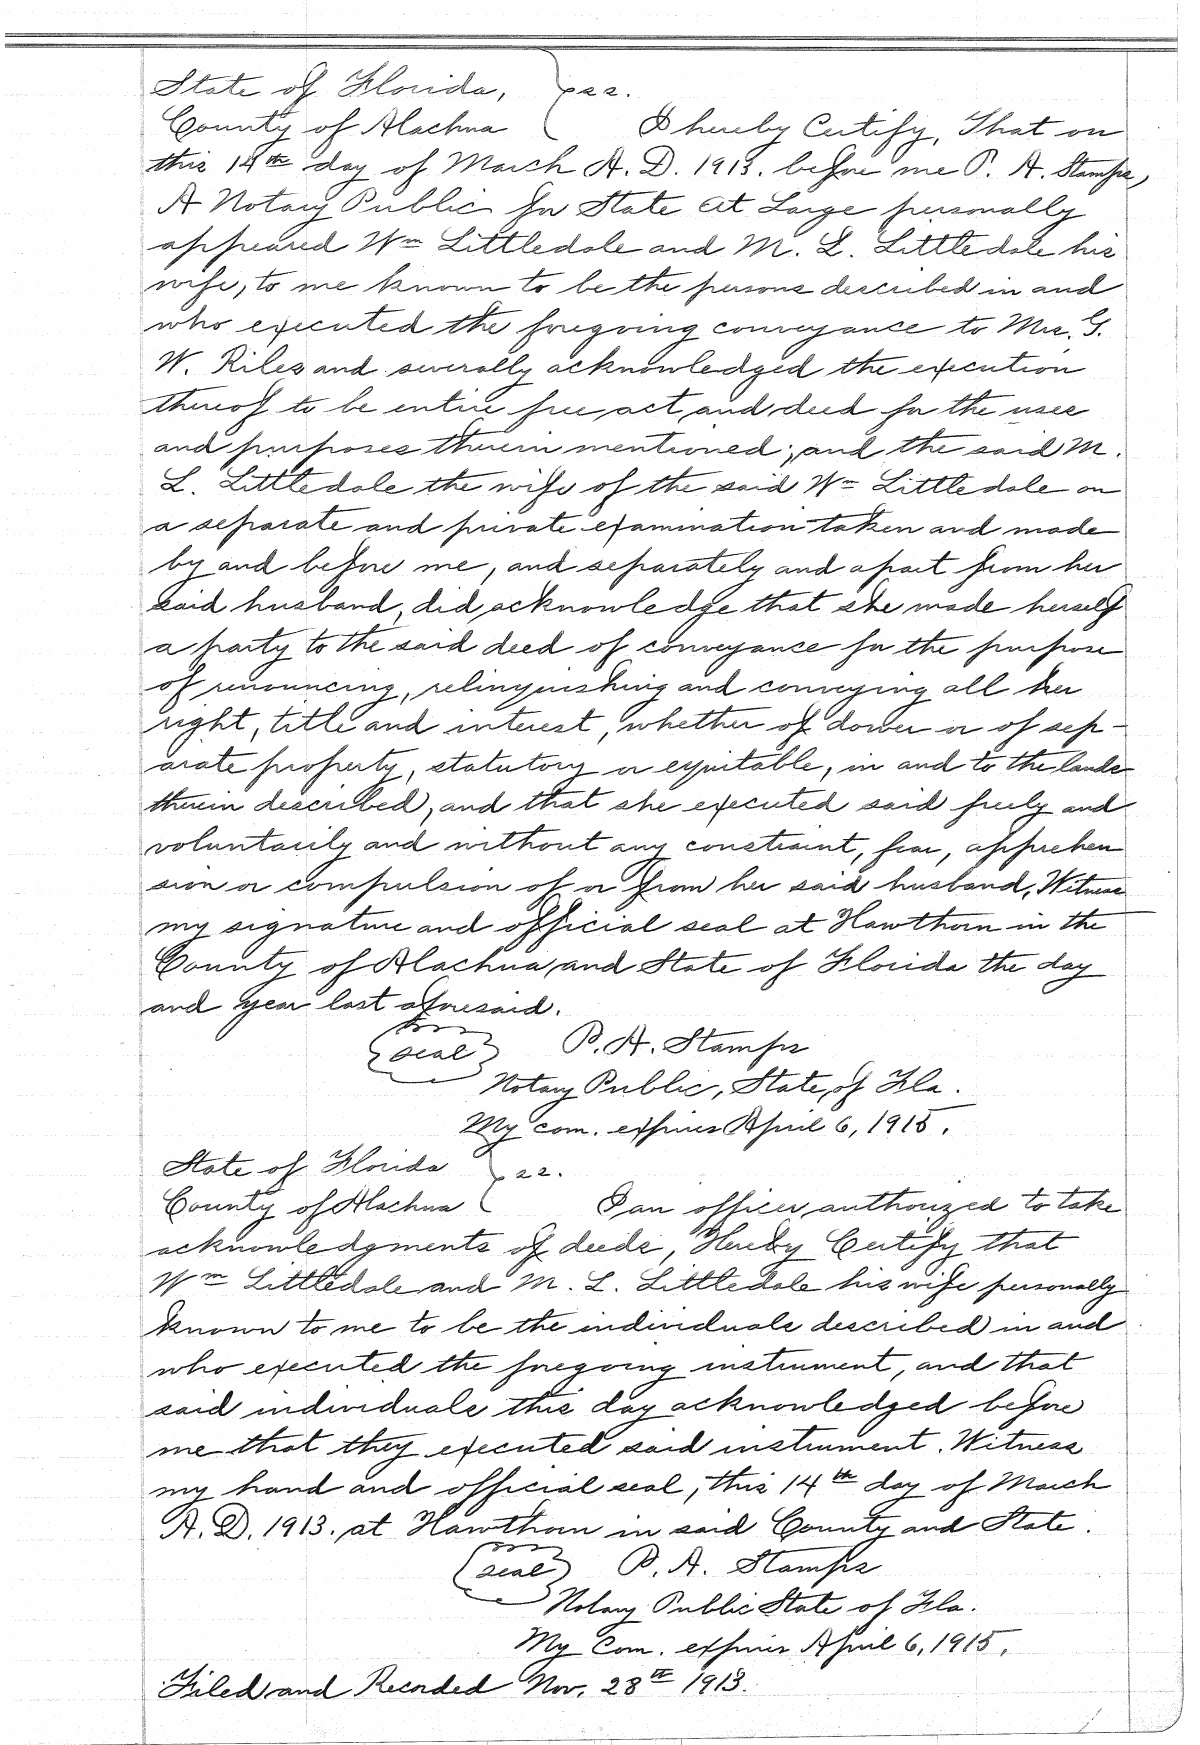 State of Florida, } ss.
County of Alachua I hereby Certify, That on
this 14th day of March A. D. 1913. before me P. A. Stamps,
A Notary Public for State at Large personally
appeared Wm Littledale and M. L. Littledale his
wife, to me known to be the persons described in and
who executed the foregoing conveyance to Mrs. G.
W. Riles and severally acknowledged the execution
thereof to be entire free act and deed for the uses
and purposes therein mentioned; and the said M.
L. Littledale the wife of the said Wm Littledale on
a separate and private examination taken and made
by and before me, and separately and apart from her
said husband, did acknowledge that she made herself
a party to the said deed of conveyance for the purpose
of renouncing, relinquishing and conveying all her
right, title and interest, whether of dower or of sep-
arate property, statutory or equitable, in and to the lands
therein described, and that she executed said freely and
voluntarily and without any constraint, fear, apprehen
sion or compulsion of or from her said husband, Witness
my signature and official seal at Hawthorn in the
County of Alachua and State of Florida the day
and year last aforesaid.
seal P. A. Stamps
Notary Public, State of Fla.
My com. expires April 6, 1915.
State of Florida } ss.
County of Alachua I an officer authorized to take
acknowledgments of deeds, Hereby Certify that
Wm Littledale and M. L. Littledale his wife personally
known to me to be the individuals described in and
who executed the foregoing instrument, and that
said individuals this day acknowledged before
me that they executed said instrument. Witness
my hand and official seal, this 14th day of March
A. D. 1913. at Hawthorn in said County and State.
seal P. A. Stamps
Notary Public State of Fla.
My Com. expires April 6, 1915.
Filed and Recorded Nov. 28th 1913.